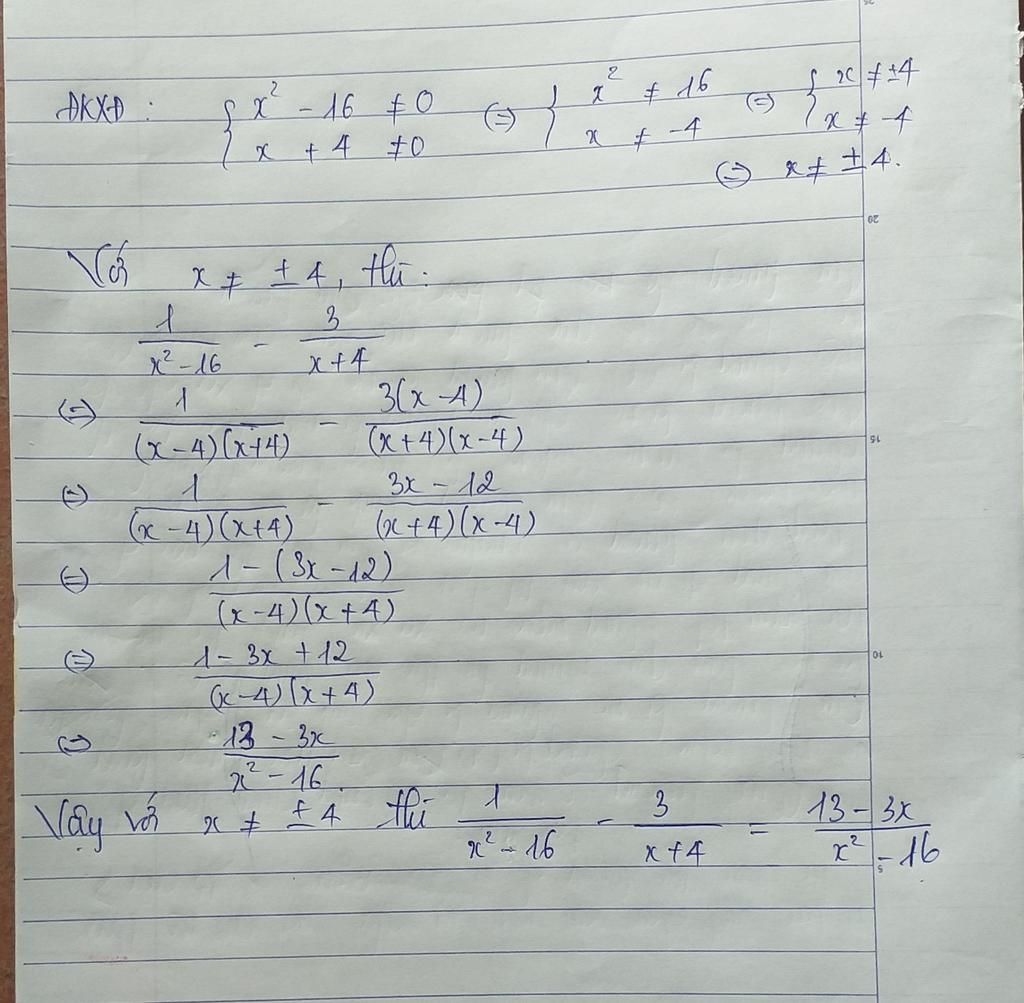 ĐKXĐ : { x² - 16 ≠ 0 ⇔ { x² ≠ 16 ⇔ { x ≠ ±4
x + 4 ≠ 0 x ≠ -4 x ≠ -4
⇔ x ≠ ± 4.
Với x ≠ ± 4, thì :
1/(x² - 16) - 3/(x + 4)
⇔ 1/((x - 4)(x + 4)) - 3(x - 4)/((x + 4)(x - 4))
⇔ 1/((x - 4)(x + 4)) - (3x - 12)/((x + 4)(x - 4))
⇔ (1 - (3x - 12))/((x - 4)(x + 4))
⇔ (1 - 3x + 12)/((x - 4)(x + 4))
⇔ (13 - 3x)/(x² - 16)
Vậy với x ≠ ± 4 thì 1/(x² - 16) - 3/(x + 4) = (13 - 3x)/(x² - 16)
20
15
10
5